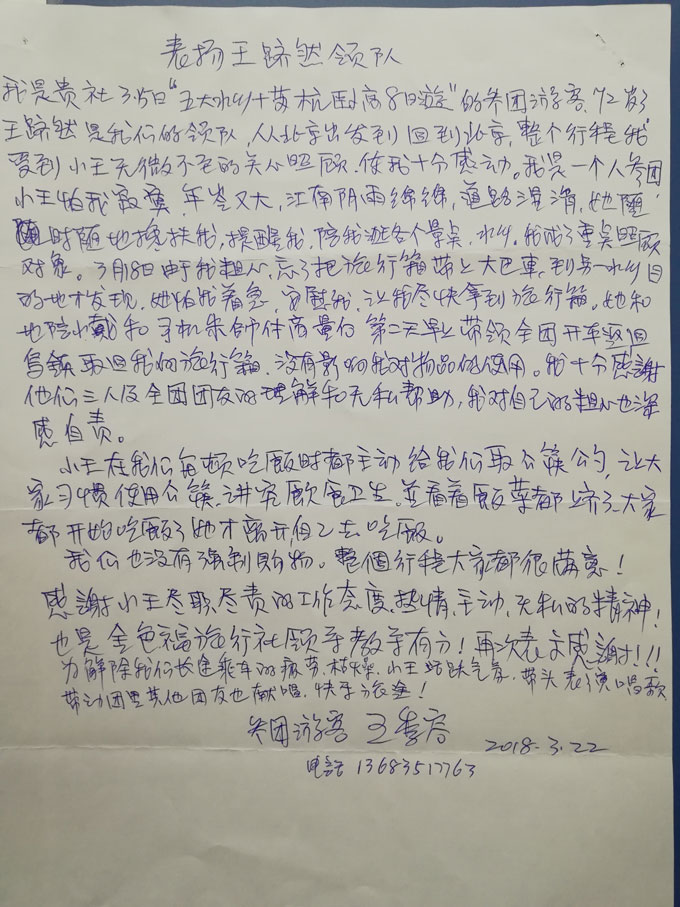 表扬王 然领队
我是贵社3.15日“五大水乡+苏杭 8日遊”的参团游客、72岁了
王 然是我们的领队，从北京出发到回到北京，整个行程我
受到小王无微不至的关心照顾、使我十分感动。我是一个人参团
小王怕我寂寞、年岁又大，江南阴雨绵绵，道路湿滑，她
随时随地搀扶我，提醒我，陪我逛各个景点，水乡。我成了重点照顾
对象。3月18日由于我粗心、忘了把旅行箱带上大巴車，到另一水乡目
的地才发现，她怕我着急，安慰我，让我尽快拿到旅行箱。她和
地陪小戴和司机朱帥伟商量后第二天早上带领全团开车 回
乌镇取回我的旅行箱，没有影响我对物品的使用。我十分感謝
他们三人及全团团友的理解和无私帮助，我对自己的粗心也深
感自责。
小王在我们每顿吃飯时都主动给我们取公筷公勺，让大
家习慣使用公筷，讲究飲食卫生，並看着飯菜都上齐了大家
都开始吃飯了她才离开自己去吃飯。
我们也没有强制购物。整個行程大家都很滿意！
感謝小王尽职尽责的工作态度，热情、主动、无私的精神！
也是金色福旅行社领导教导有方！再次表示感謝！！！
为解除我们长途乘车的疲劳、枯燥、小王 跃气氛、带头表演唱歌
带动团里其他团友也献唱，快乐旅途！
参团游客 王 容 2018.3.22
电話 13683517763